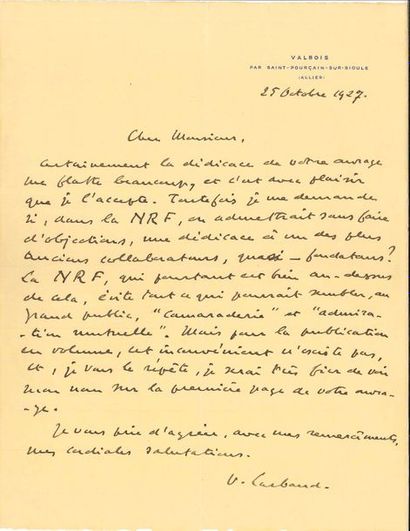 VALBOIS
PAR SAINT-POURÇAIN-SUR-SIOULE
(ALLIER)
25 Octobre 1927.
Cher Monsieur,
Certainement la dédicace de votre ouvrage
me flatte beaucoup, et c'est avec plaisir
que je l'accepte. Toutefois je me demande
si, dans la NRF, on admettrait sans faire
d'objections, une dédicace à un des plus
anciens collaborateurs, quasi-fondateurs?
La NRF, qui pourtant est bien au-dessus
de cela, évite tout ce qui pourrait sembler, au
grand public, "Camaraderie" et "admira-
tion mutuelle". Mais pour la publication
en volume, cet inconvénient n'existe pas,
et, je vous le répète, je serai très fier de voir
mon nom sur la première page de votre ouvra-
ge.
Je vous prie d'agréer, avec mes remerciements,
mes cordiales salutations.
V. Larbaud.